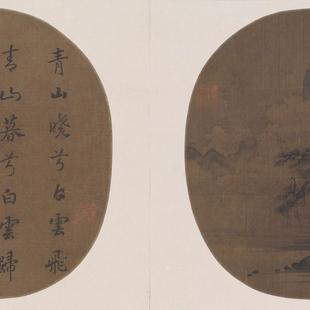 青山曉兮白雲飛
青山暮兮白雲歸